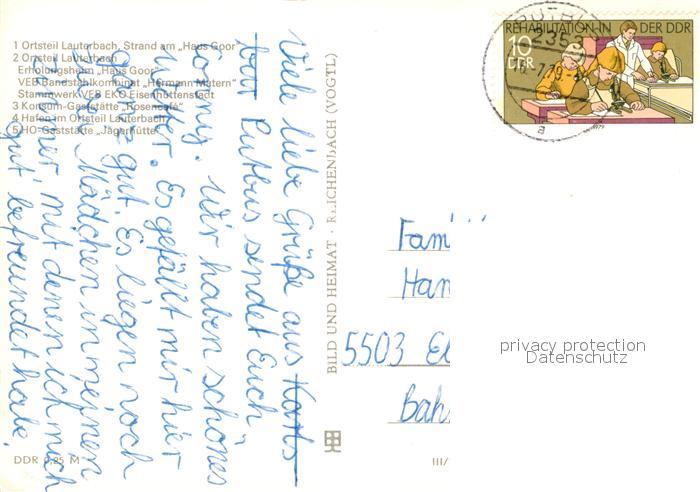 1 Ortsteil Lauterbach, Strand am „Haus Goor"
2 Ortsteil Lauterbach
Erholungsheim „Haus Goor"
VEB Bandstahlkombinat „Hermann Matern"
Stammwerk VEB EKO Eisenhüttenstadt
3 Konsum-Gaststätte „Rosencafé"
4 Hafen im Ortsteil Lauterbach
5 HO-Gaststätte „Jägerhütte"
Viele liebe Grüße aus
Putbus sendet Euch
Conny. Wir haben schönes
Wetter. Es gefällt mir hier
ganz gut. Es liegen noch
Mädchen in meinem
Zimmer mit denen ich mich
gut befreundet habe.
BILD UND HEIMAT · REICHENBACH (VOGTL)
REHABILITATION IN DER DDR
10
DDR
1979
2353
a
Fam
Han
5503 El
Bah
privacy protection
Datenschutz
DDR 0,25 M
III/